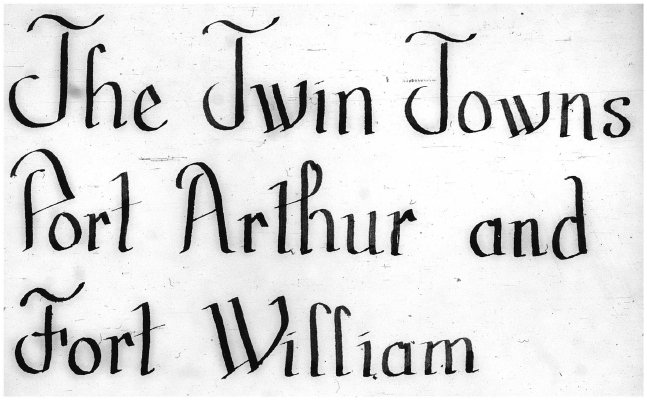 The Twin Towns
Port Arthur and
Fort William